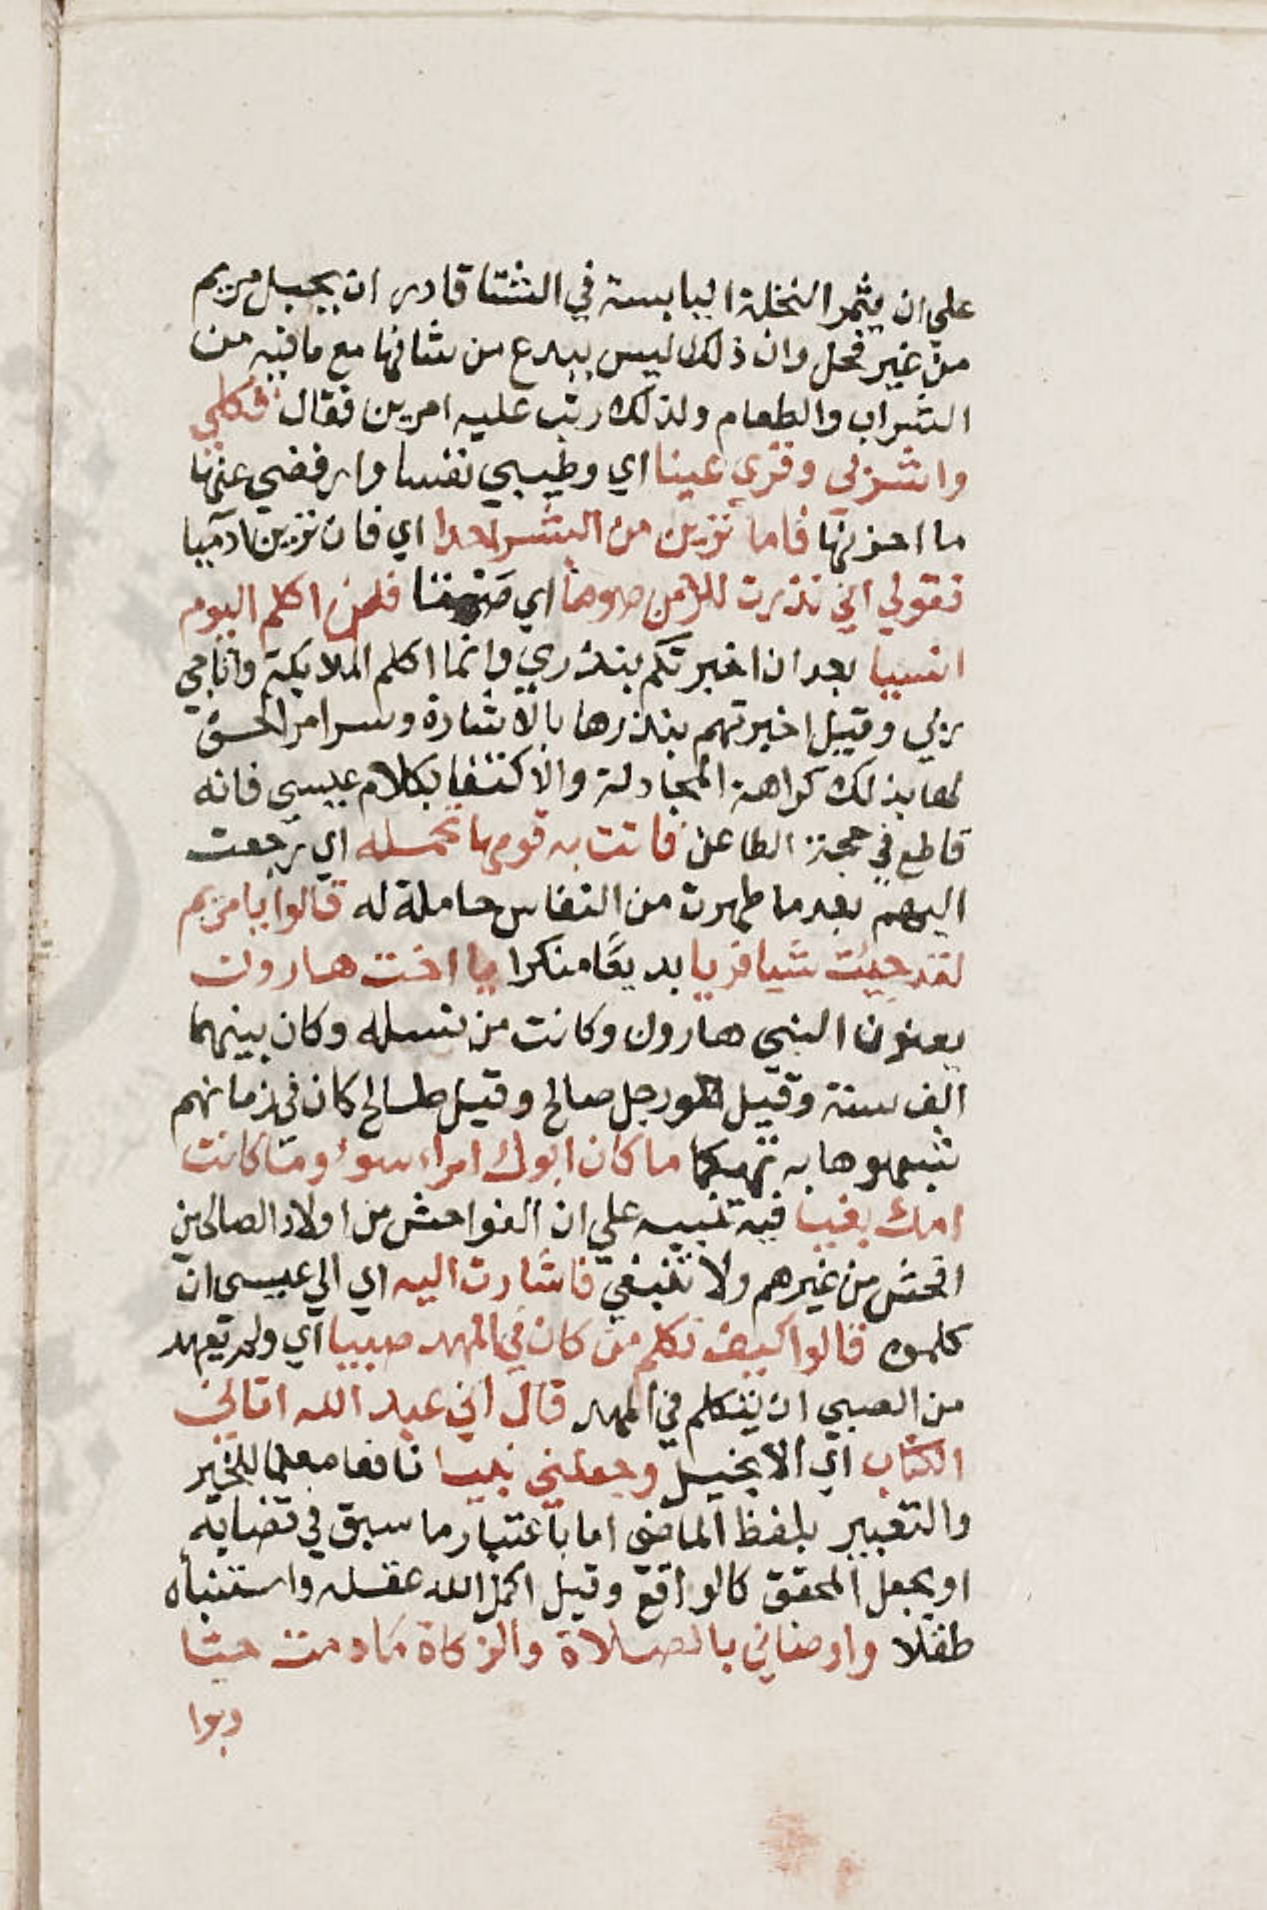 علي ان يثمر النخلة اليابسة في الشتا قادر ان يحبل مريم
من غير فحل وان ذلك ليس ببدع من شانها مع ما فيه من
الشراب والطعام ولذلك رتب عليه امرين فقال فكلي
واشربي وقري عينا اي وطيبي نفسا وارفضي عنها
ما احزنها فاما ترين من البشر احدا اي فان ترين ادميا
فقولي اني نذرت للرحمن صوما اي صمتا فلن اكلم اليوم
انسيا بعد ان اخبرتكم بنذري وانما اكلم الملايكة واناجي
ربي وقيل اخبرتهم بنذرها بالاشارة وسر امر الحق
لها بذلك كراهة المجادلة والاكتفا بكلام عيسي فانه
قاطع في حجة الطاعن فاتت به قومها تحمله اي رجعت
اليهم بعد ما طهرت من النفاس حاملة له قالوا يا مريم
لقد جيت شيا فريا بديعا منكرا يا اخت هارون
يعنون النبي هارون وكانت من نسله وكان بينهما
الف سنة وقيل هو رجل صالح وقيل طالح كان في زمانهم
شبهوها به تهكما ما كان ابوك امراء سوء وما كانت
امك بغيا فيه تنبيه علي ان الفواحش من اولاد الصالحين
افحش من غيرهم ولا تنبغي فاشارت اليه اي الي عيسي ان
كلموه قالوا كيف نكلم من كان في المهد صبيا اي ولم يعهد
من الصبي ان يتكلم في المهد قال اني عبد الله اتاني
الكتاب اي الانجيل وجعلني نبيا نافعا معلما للخير
والتعبير بلفظ الماضي اما باعتبار ما سبق في قضايه
او بجعل المحقق كالواقع وقيل اكمل الله عقله واستنباه
طفلا واوصاني بالصلاة والزكاة ما دمت حيا
وبرا